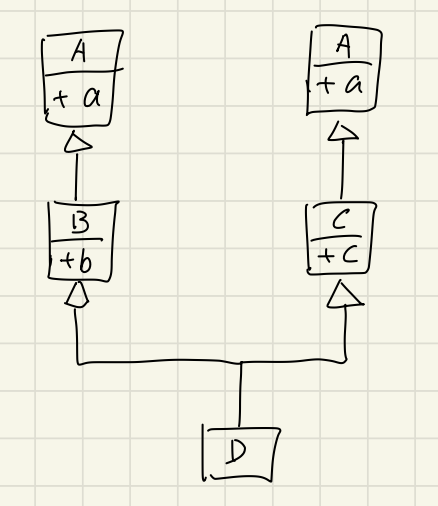 A
+ a
A
+ a
B
+b
C
+ C
D